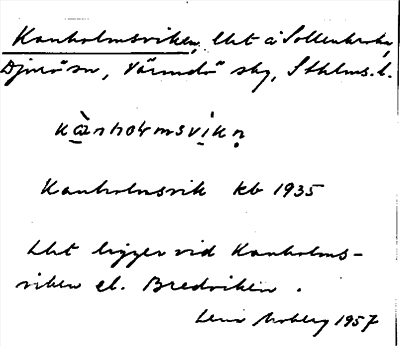 Kanholmsviken, lht å Sollenkroka,
Djurö sn, Värmdö skg, Sthlms. l.
kànhoɫmsvìkn̥
Kanholmsvik kb 1935
Lht ligger vid Kanholms-
viken el. Bredviken.
Lena Moberg 1957